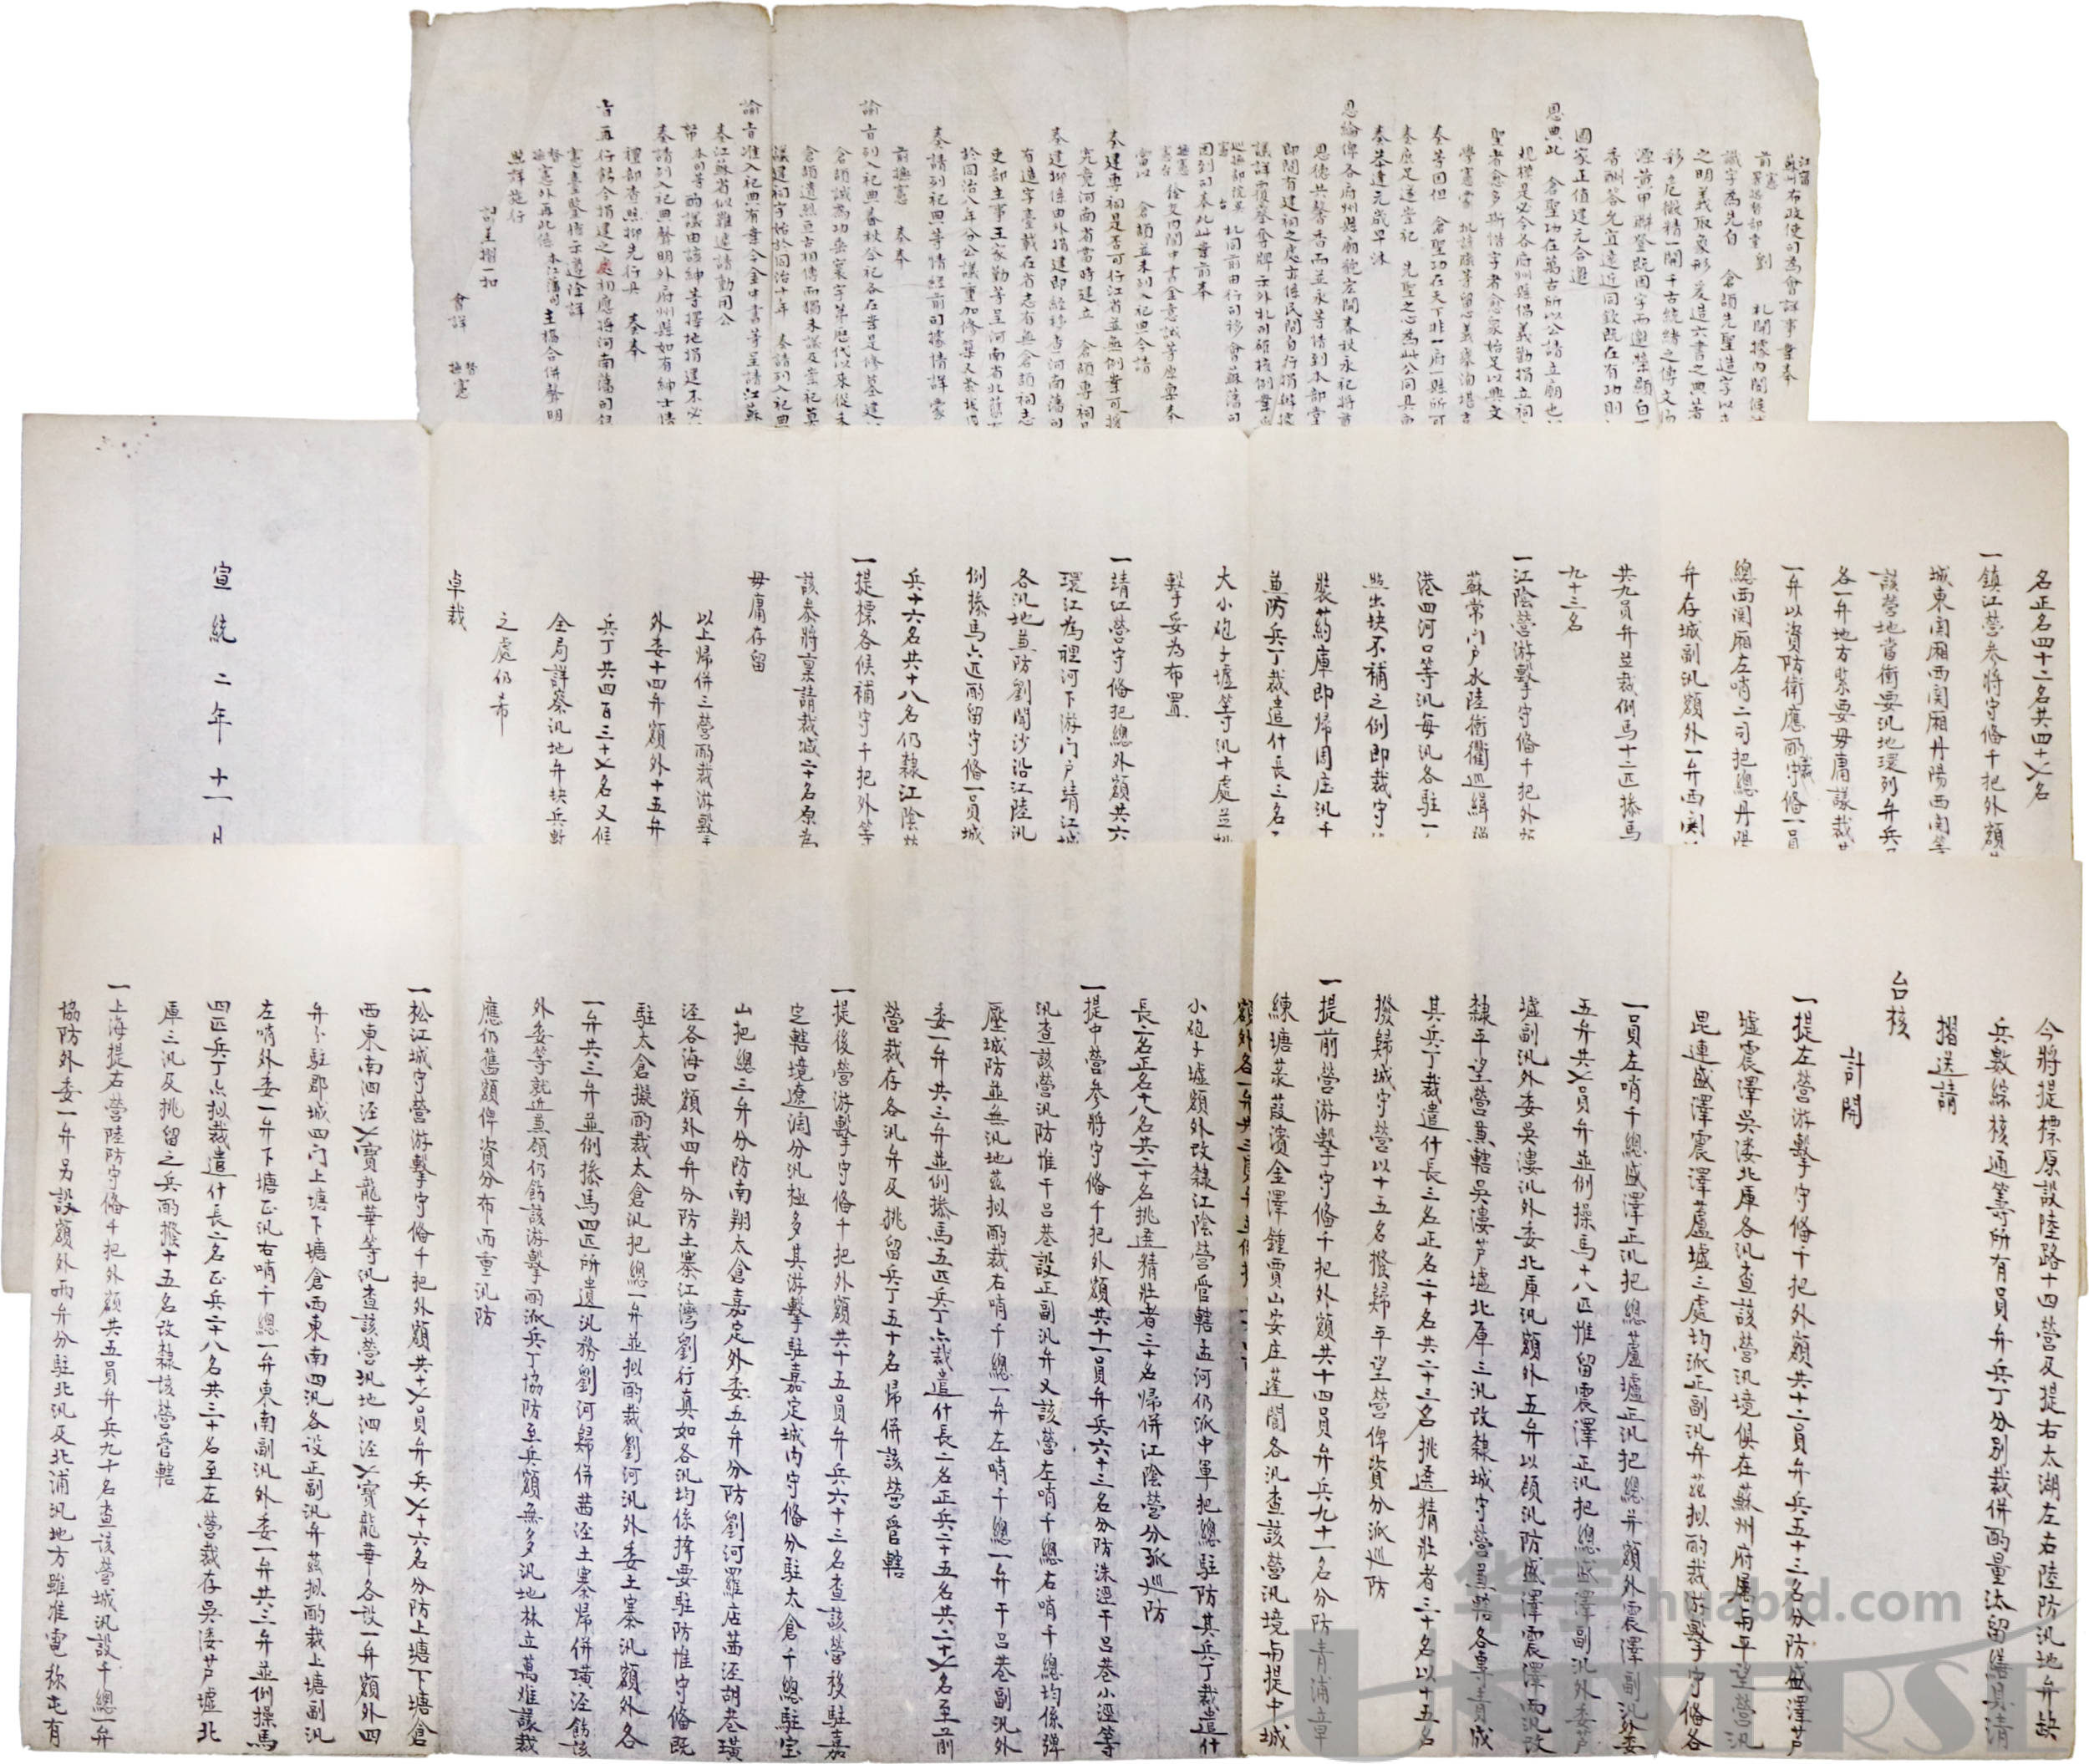 江寧
蘇州布政使司為會詳事案奉
前署總督部堂劉 札開據內閣候
識字為先自 倉頡先聖造字以
之明義取象形爰造六書之典昔
彩危微精一開千古統緒之傳文
源黃甲聯登既因字而邀榮顯自
香酬答允宜遠近同欽既在有功則
國家正值建元合邀
恩典此 倉聖功在萬古所以公請立廟也
規模是必令各府州縣倡義勸捐立祠
聖者愈多斯惜字者愈眾始足以興文
奏等因但 倉聖功在天下非一府一縣所可
奏庶足遂崇祀 先聖之心為此公同具
奏恭逢元歲早沐
恩綸俾各府州縣廟貌宏開春秋永祀將
恩德共馨香而並永等情到本部堂
即間有建祠之處亦係民間自行捐辦
議詳覆察奪牌示外札司確核例案
因到司奉此案前奉
撫憲
當以 倉頡並未列入祀典今請
奏建專祠是否可行江省並無例案可援
光竟河南省當時建立 倉頡專祠
奏建抑係由外捐建即經移查河南藩司
有造字臺載在省志有無倉頡祠志
吏部主事王家勤等呈河南省北
於同治八年分公議重加修葺又
奏請列祀典等情經前司據情詳蒙
前撫憲 奏奉
諭旨列入祀典春秋公祀各在案是修墓建
倉頡誠為功垂寰宇第歷代以來從未
倉頡遺跡亘古相傳而獨未議及崇祀
議建祠宇始於同治十年 奏請列入祀典
諭旨准入祀典有案今金中書等呈請江蘇
奏江蘇省似難遽請動用公
帑 本司等酌議由該紳等擇地捐建不必
奏請列入祀典聲明外府州縣如有紳士情
禮部查照抑先行具 奏奉
旨再行飭令捐建之處初應將河南藩司
憲臺鑒核示遵除詳
督憲
撫憲外再此係本江藩司主稿合併聲明
照詳施行
計呈摺一扣
會詳 督
撫憲
名正名四十二名共四十七名
一鎮江營參將守備千把外額
城東關廂西關廂丹陽西關等
該營地當衝要汛地環列弁兵
各一弁地方緊要毋庸議裁
一弁以資防衛應酌裁守備一員
總西關廂左哨二司把總丹陽
弁存城副汛額外一弁西關
共九員弁並裁倒馬十二匹捺馬
九十三名
一江陰營游擊守備千把外
蘇常門戶水陸衝衢巡緝
港四河口等汛每汛各駐一
照出缺不補之例即裁守
裝藥庫即歸周庄汛千
兼防兵丁裁遣什長三名
大小砲子墟等汛十處並
擊妥為布置
一靖江營守備把總外額共六
環江為裡河下游門戶靖江城
各汛地兼防劉聞沙沿江陸汛
倒捺馬六匹酌留守備一員城
兵十六名共十八名仍隸江陰
一提標各候補守千把外等
該參將稟請裁減二十名原為
毋庸存留
以上歸併三營酌裁游擊
外委十四弁額外十五弁
兵丁共四百三十七名又
全局詳察汛地弁缺兵數
之處仍希
卓裁
宣統二年十一月
今將提標原設陸路十四營及提右太湖左右陸防汛地弁缺
兵數綜核通籌所有員弁兵丁分別裁併酌量汰留繕具清
摺送請
台核
計開
一提左營游擊守備千把外額共十二員弁兵五十三名分防盛澤芦
墟震澤吳溇北庫各汛查該營汛境俱在蘇州府屬而平望營汛
毘連盛澤震澤蘆墟三處均派正副汛弁茲拟酌裁游擊守備各
一員左哨千總盛澤正汛把總蘆墟正汛把總並額外震澤副汛外委
五弁共七員弁並例操馬十八匹惟留震澤正汛把總盛澤副汛外委芦
墟副汛外委吳溇汛外委北庫汛額外五弁以顧汛防盛澤震澤兩汛改
隸平望營兼轄吳溇芦墟北庫三汛改隸城守營兼轄各專責成
其兵丁裁遣什長三名正名二十名共二十三名挑選精壯者三十名以十五名
撥歸城守營以十五名撥歸平望營俾資分派巡防
一提前營游擊守備千把外額共十四員弁兵九十一名分防青浦章
練塘菉葭濱金澤鍾賈山安庄蓬閬各汛查該營汛境与提中城
小砲子墟額外改隸江陰營管轄孟河仍派中軍把總駐防其兵丁裁遣什
長二名正名十八名共二十名挑選精壯者三十名歸併江陰營分派巡防
一提中營參將守備千把外額共十一員弁兵六十三名分防洙涇干呂巷小涇等
汛查該營汛防惟干呂巷設正副汛弁又該營左哨千總右哨千總均係彈
壓城防並無汛地茲拟酌裁右哨千總一弁左哨千總一弁干呂巷副汛外
委一弁共三弁並倒捺馬五匹兵丁六裁遣什長二名正兵二十五名共二十七名至前
營裁存各汛弁及挑留兵丁五十名歸併該營管轄
一提後營游擊守備千把外額共十五員弁兵六十三名查該營後駐嘉
定轄境遼濶分汛極多其游擊駐嘉定城內守備分駐太倉千總駐宝
山把總三弁分防南翔太倉嘉定外委五弁分防劉河羅店茜涇胡巷璜
涇各海口額外四弁分防土寨江灣劉行真如各汛均係擇要駐防惟守備既
駐太倉擬酌裁太倉汛把總一弁並拟酌裁劉河汛外委土寨汛額外各
一弁共三弁並倒捺馬四匹所遺汛務劉河歸併茜涇土寨歸併璜涇飭該
外委等就近兼領仍飭該游擊酌派兵丁協防至兵額無多汛地林立萬難議裁
應仍舊額俾資分布而重汛防
一松江城守營游擊守備千把外額共十七員弁兵七十六名分防上塘下塘倉
西東南泗涇七寶龍華等汛查該營汛地泗涇七寶龍華各設一弁額外四
弁分駐郡城四门上塘下塘倉西東南四汛各设正副汛弁茲拟酌裁上塘副汛
左哨外委一弁下塘正汛右哨千總一弁東南副汛外委一弁共三弁並倒操馬
四匹兵丁六拟裁遣什長二名正兵二十八名共三十名至左營裁存吳溇芦墟北
庫三汛及挑留之兵酌撥十五名改隸該營管轄
一上海提右營陸防守備千把外額共五員弁兵九十名查該營城汛設千總一弁
協防外委一弁另設額外兩弁分駐北汛及北浦汛地方雖准電
华宇 huabid.com
UNIVERSE